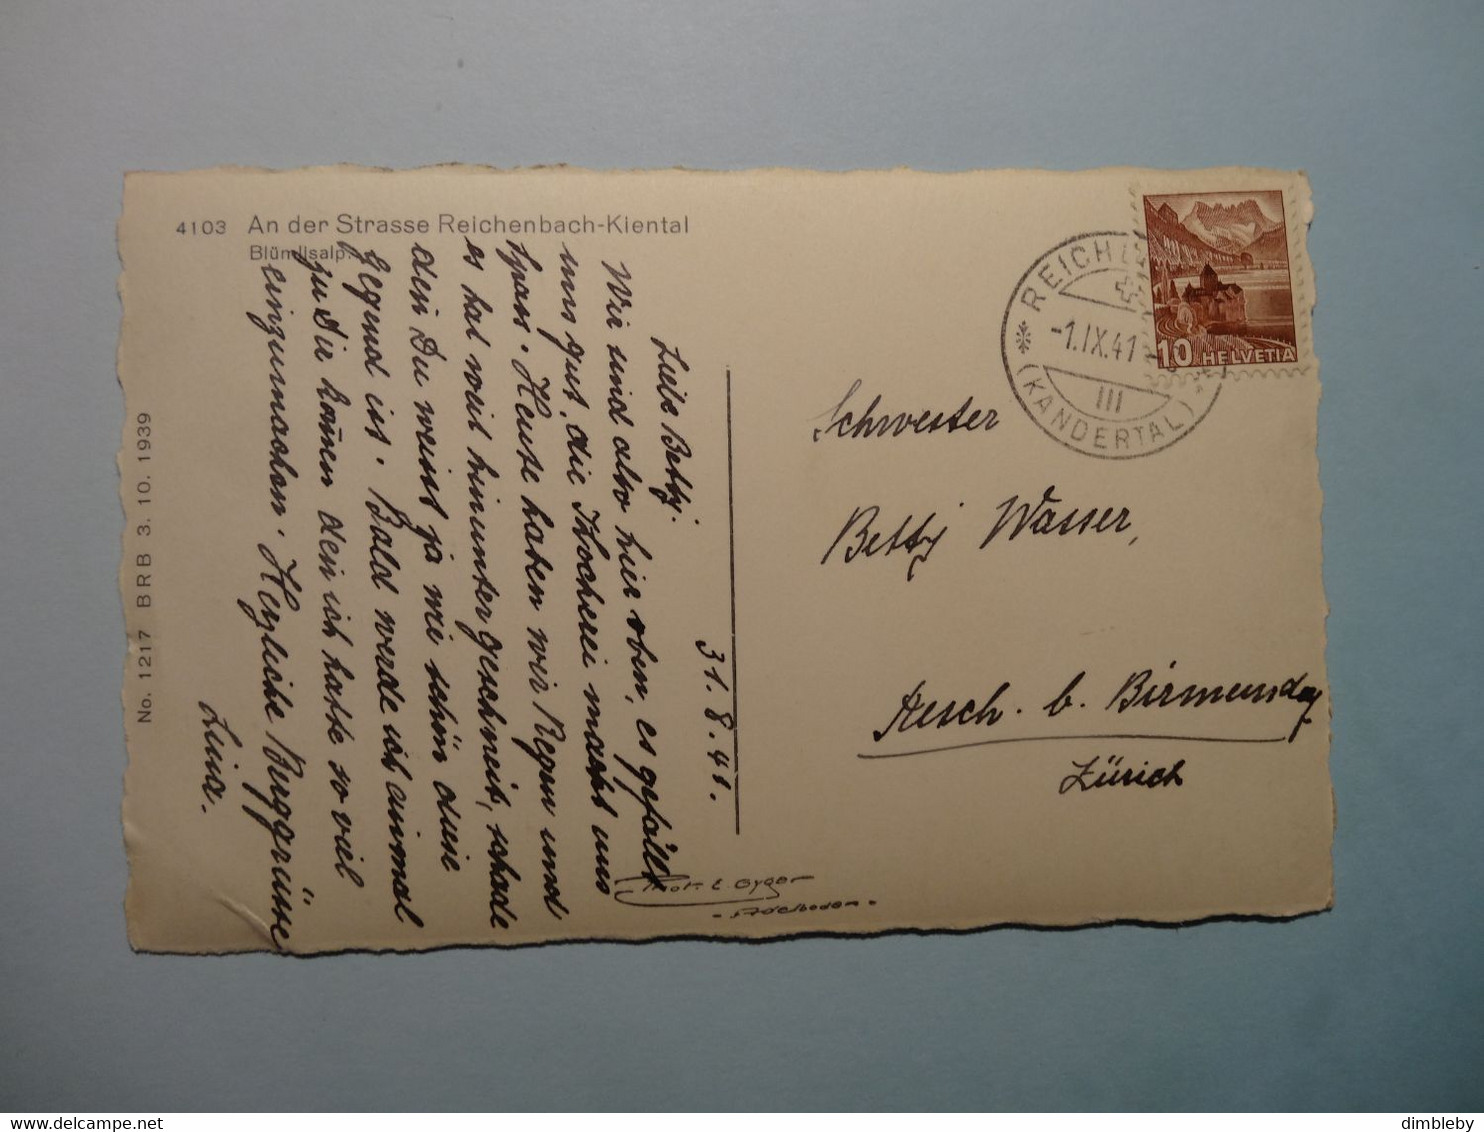 4103 An der Strasse Reichenbach-Kiental
Blümlisalp.
No. 1217 BRB 3. 10. 1939
31. 8. 41.
Liebe Betty.
Wir sind also hier oben, es gefällt
uns gut, die Kocherei macht uns
Spass. Heute haben wir Regen und
es hat weit hinunter geschneit, schade
den Du weisst ja wie schön diese
Gegend ist. Bald werde ich einmal
zu Dir kom̄en den ich hatte so viel
einzumachen. Herzliche Berggrüsse
Lina.
REICHE
-1.IX.41
III
(KANDERTAL)
10 HELVETIA
Schwester
Betty Wasser,
Aesch. b. Birmensdorf
Zürich
Phot. E. Gyger
- Adelboden -
delcampe.net
dimbleby